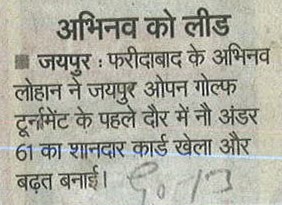 अभिनव को लीड
■ जयपुर : फरीदाबाद के अभिनव
लोहान ने जयपुर ओपन गोल्फ
टूर्नामेंट के पहले दौर में नौ अंडर
61 का शानदार कार्ड खेला और
बढ़त बनाई।